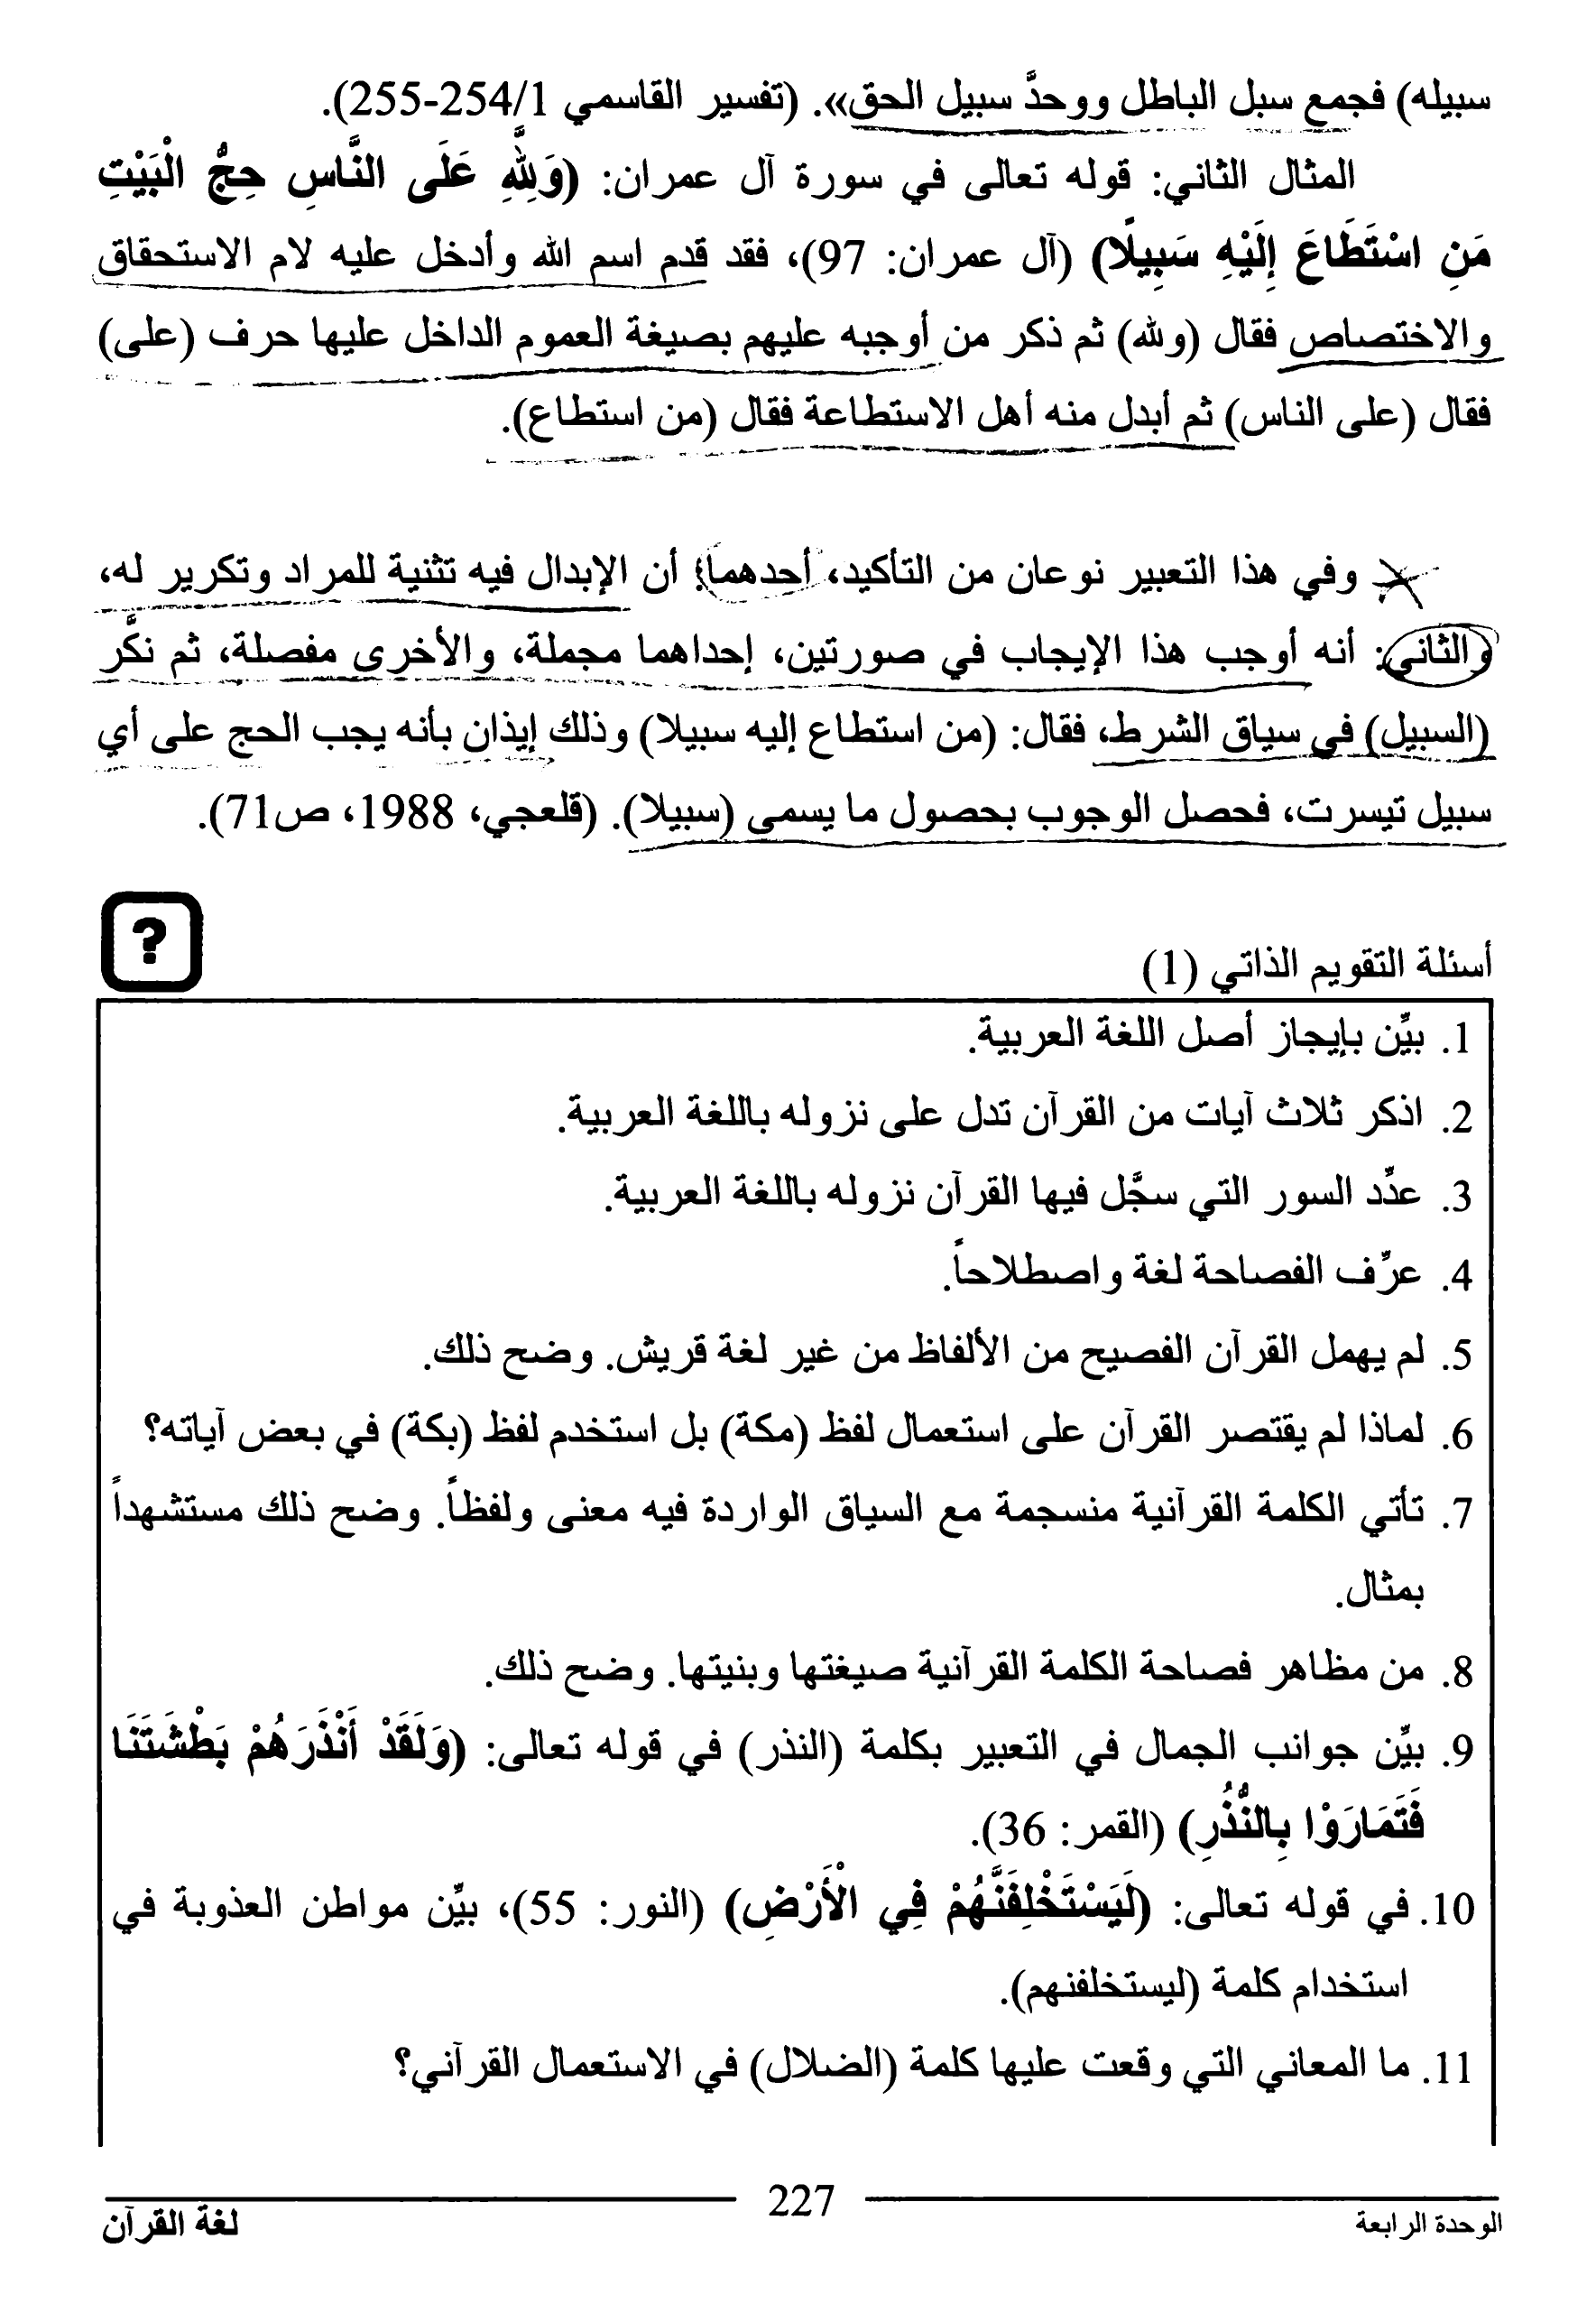 سبيله) فجمع سبل الباطل ووحدَّ سبيل الحق». (تفسير القاسمي 254/1-255).
المثال الثاني: قوله تعالى في سورة آل عمران: (وَلِلَّهِ عَلَى النَّاسِ حِجُّ الْبَيْتِ
مَنِ اسْتَطَاعَ إِلَيْهِ سَبِيلًا) (آل عمران: 97)، فقد قدم اسم الله وأدخل عليه لام الاستحقاق
والاختصاص فقال (ولله) ثم ذكر من أوجبه عليهم بصيغة العموم الداخل عليها حرف (على)
فقال (على الناس) ثم أبدل منه أهل الاستطاعة فقال (من استطاع).
وفي هذا التعبير نوعان من التأكيد، أحدهما: أن الإبدال فيه تثنية للمراد وتكرير له،
والثاني: أنه أوجب هذا الإيجاب في صورتين، إحداهما مجملة، والأخرى مفصلة، ثم نكَّر
(السبيل) في سياق الشرط، فقال: (من استطاع إليه سبيلا) وذلك إيذان بأنه يجب الحج على أي
سبيل تيسرت، فحصل الوجوب بحصول ما يسمى (سبيلا). (قلعجي، 1988، ص71).
?
أسئلة التقويم الذاتي (1)
1. بيِّن بإيجاز أصل اللغة العربية.
2. اذكر ثلاث آيات من القرآن تدل على نزوله باللغة العربية.
3. عدِّد السور التي سجَّل فيها القرآن نزوله باللغة العربية.
4. عرِّف الفصاحة لغة واصطلاحاً.
5. لم يهمل القرآن الفصيح من الألفاظ من غير لغة قريش. وضح ذلك.
6. لماذا لم يقتصر القرآن على استعمال لفظ (مكة) بل استخدم لفظ (بكة) في بعض آياته؟
7. تأتي الكلمة القرآنية منسجمة مع السياق الواردة فيه معنى ولفظاً. وضح ذلك مستشهداً
بمثال.
8. من مظاهر فصاحة الكلمة القرآنية صيغتها وبنيتها. وضح ذلك.
9. بيِّن جوانب الجمال في التعبير بكلمة (النذر) في قوله تعالى: (وَلَقَدْ أَنْذَرَهُمْ بَطْشَتَنَا
فَتَمَارَوْا بِالنُّذُرِ) (القمر: 36).
10. في قوله تعالى: (لَيَسْتَخْلِفَنَّهُمْ فِي الْأَرْضِ) (النور: 55)، بيِّن مواطن العذوبة في
استخدام كلمة (ليستخلفنهم).
11. ما المعاني التي وقعت عليها كلمة (الضلال) في الاستعمال القرآني؟
227
الوحدة الرابعة
لغة القرآن